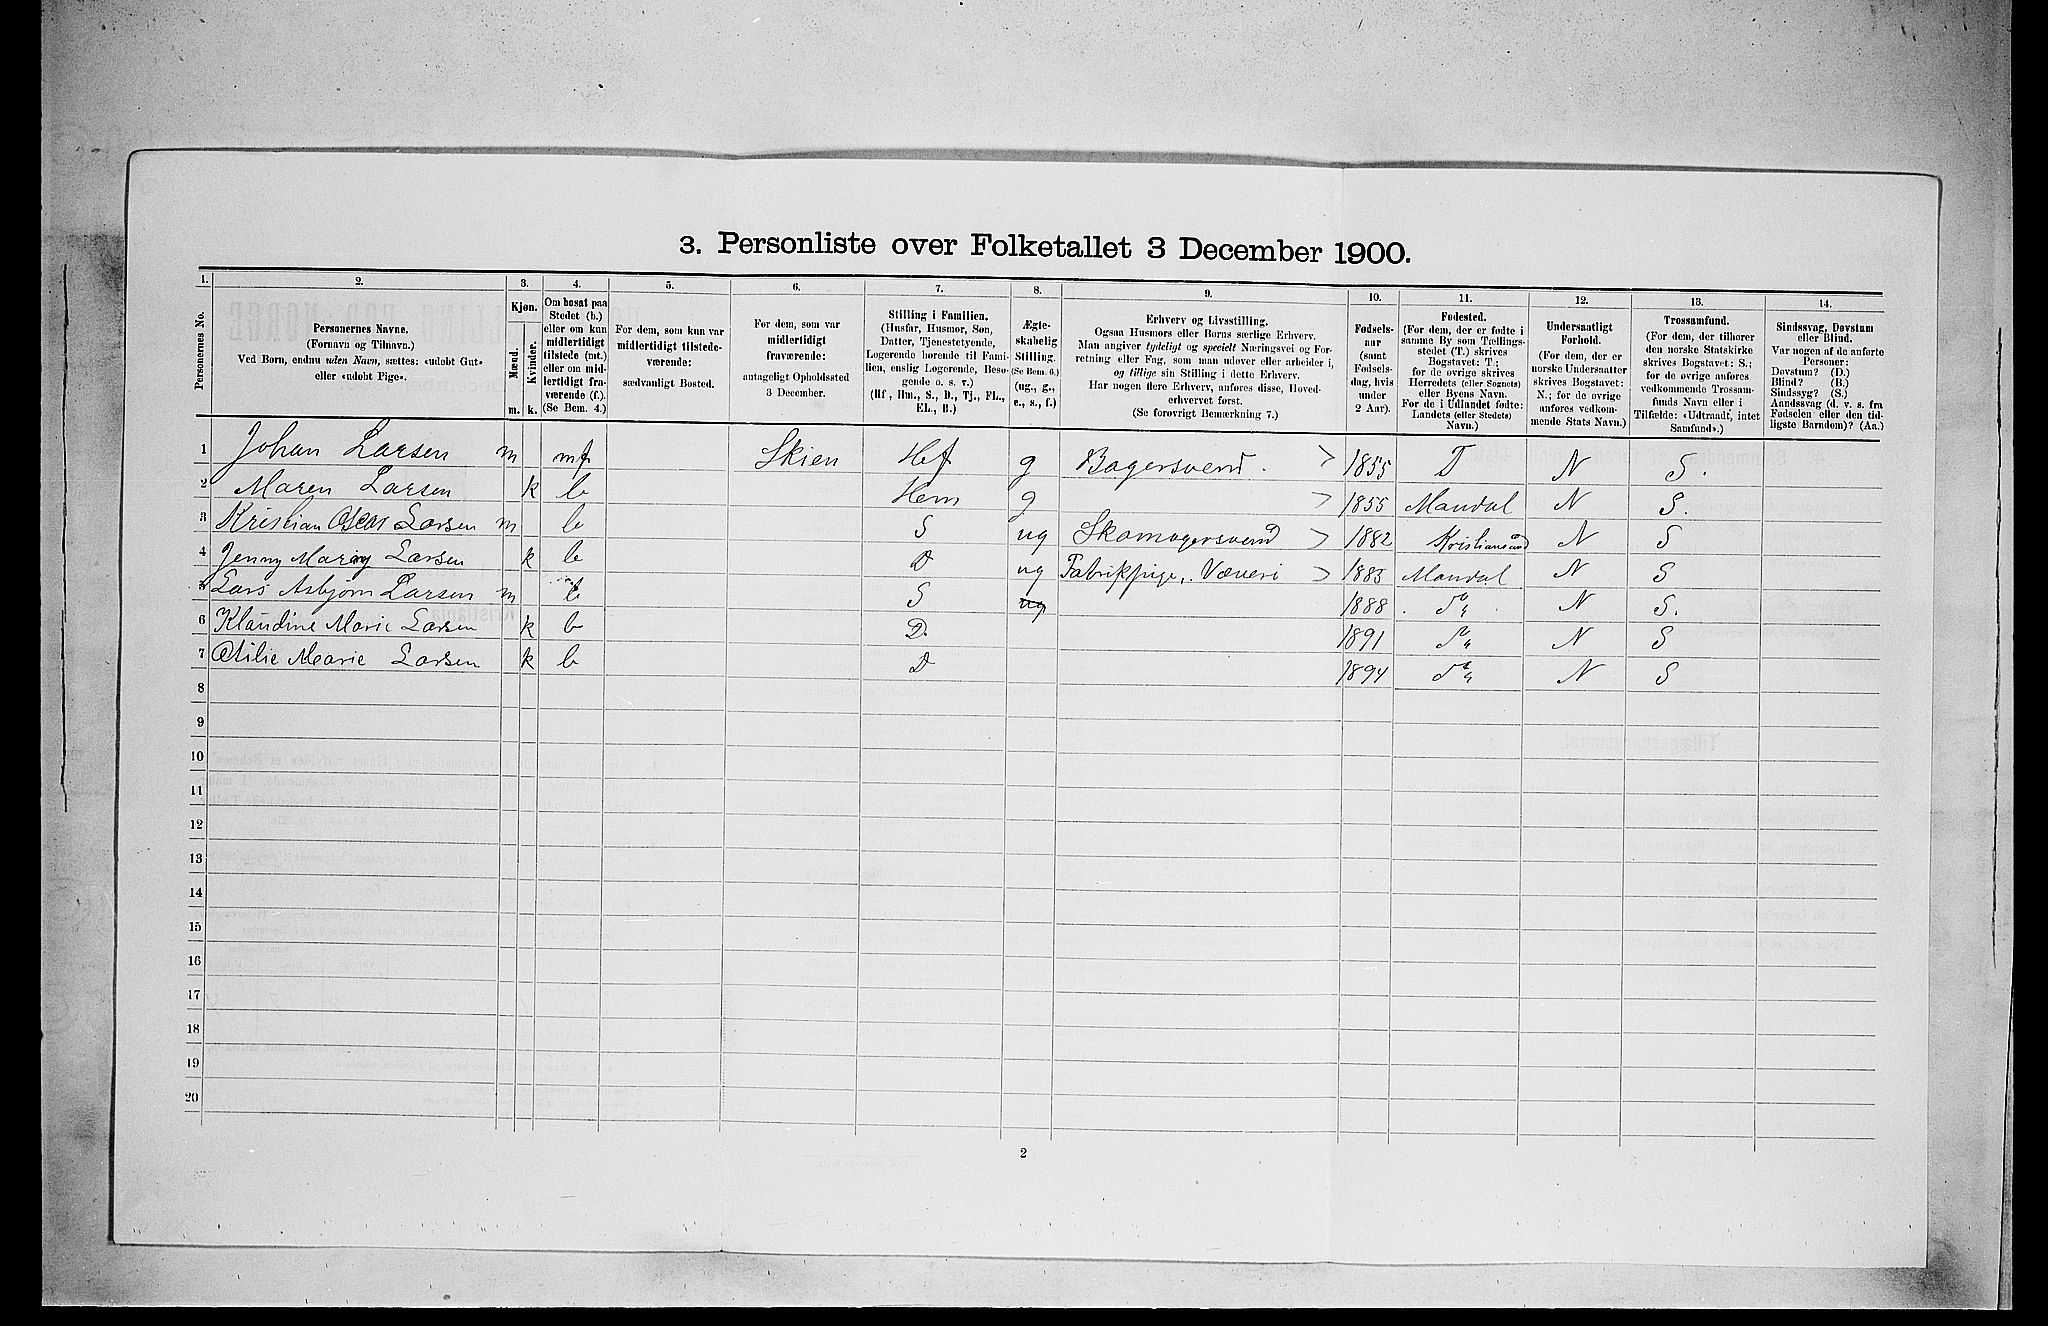 3. Personliste over Folketallet 3 December 1900.
1. 2. 3. 4. 5. 6. 7. 8. 9. 10. 11. 12. 13. 14.
Personernes No.
Personernes Navne.
(Fornavn og Tilnavn.)
Ved Børn, endnu uden Navn, sættes: «udøbt Gut»
eller «udøbt Pige».
Kjøn.
Mænd. Kvinder.
m. k.
Om bosat paa
Stedet (b.)
eller om kun
midlertidigt
tilstede (mt.)
eller om mid-
lertidigt fra-
værende (f.).
(Se Bem. 4.)
For dem, som kun var
midlertidigt tilstede-
værende:
sædvanligt Bosted.
For dem, som var
midlertidigt
fraværende:
antageligt Opholdssted
3 December.
Stilling i Familien.
(Husfar, Husmor, Søn,
Datter, Tjenestetyende,
Logerende hørende til Fami-
lien, enslig Logerende, Besø-
gende o. s. v.)
(Hf., Hm., S., D., Tj., FL.,
EL., B.)
Ægte-
skabelig
Stilling.
(Se Bem. 6.)
(ug., g.,
e., s., f.)
Erhverv og Livsstilling.
Ogsaa Husmors eller Børns særlige Erhverv.
Man angiver tydeligt og specielt Næringsvei og For-
retning eller Fag, som man udøver eller arbeider i,
og tillige sin Stilling i dette Erhverv.
Har nogen flere Erhverv, anføres disse, Hoved-
erhvervet først.
(Se forøvrigt Bemærkning 7.)
Fødsels-
aar
(samt
Fødsels-
dag, hvis
under
2 Aar).
Fødested.
(For dem, der er fødte i
samme By som Tællings-
stedet (T.) skrives
Bogstavet: T;
for de øvrige skrives
Herredets (eller Sognets)
eller Byens Navn.
For de i Udlandet fødte:
Landets (eller Stedets)
Navn.)
Undersaatligt
Forhold.
(For dem, der er
norske Undersaatter
skrives Bogstavet:
N.; for de øvrige
anføres vedkom-
mende Stats Navn.)
Trossamfund.
(For dem, der tilhører
den norske Statskirke
skrives Bogstavet: S.;
for de øvrige anføres
vedkommende Trossam-
funds Navn eller i
Tilfælde: «Udtraadt, intet
Samfund».)
Sindssvag, Døvstum
eller Blind.
Var nogen af de anførte
Personer:
Døvstum? (D.)
Blind? (B.)
Sindssyg? (S.)
Aandssvag (d. v. s. fra
Fødselen eller den tid-
ligste Barndom)? (Aa.)
1 Johan Larsen m mf Skien Hf g Bagersvend. 1855 T N S.
2 Maren Larsen k b Hm g 1855 Mandal N S.
3 Kristian Oscar Larsen m b S ug Skomagersvend 1882 Kristiansand N S
4 Jenny Larsen k b D ug Fabrikpige, Væveri 1885 Mandal N S
5 Lars Asbjørn Larsen m b S ug 1888 do N S.
6 Klaudine Marie Larsen k b D. 1891 do N S
7 Otilie Marie Larsen k b D 1894 do N S
8
9
10
11
12
13
14
15
16
17
18
19
20
2